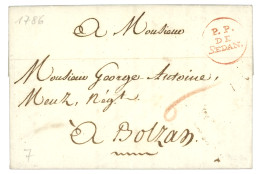 1786
A Monsieur
P. P.
DE
SEDAN
Monsieur George Antoine,
Menz, Négt
6
A Bolzan.
7